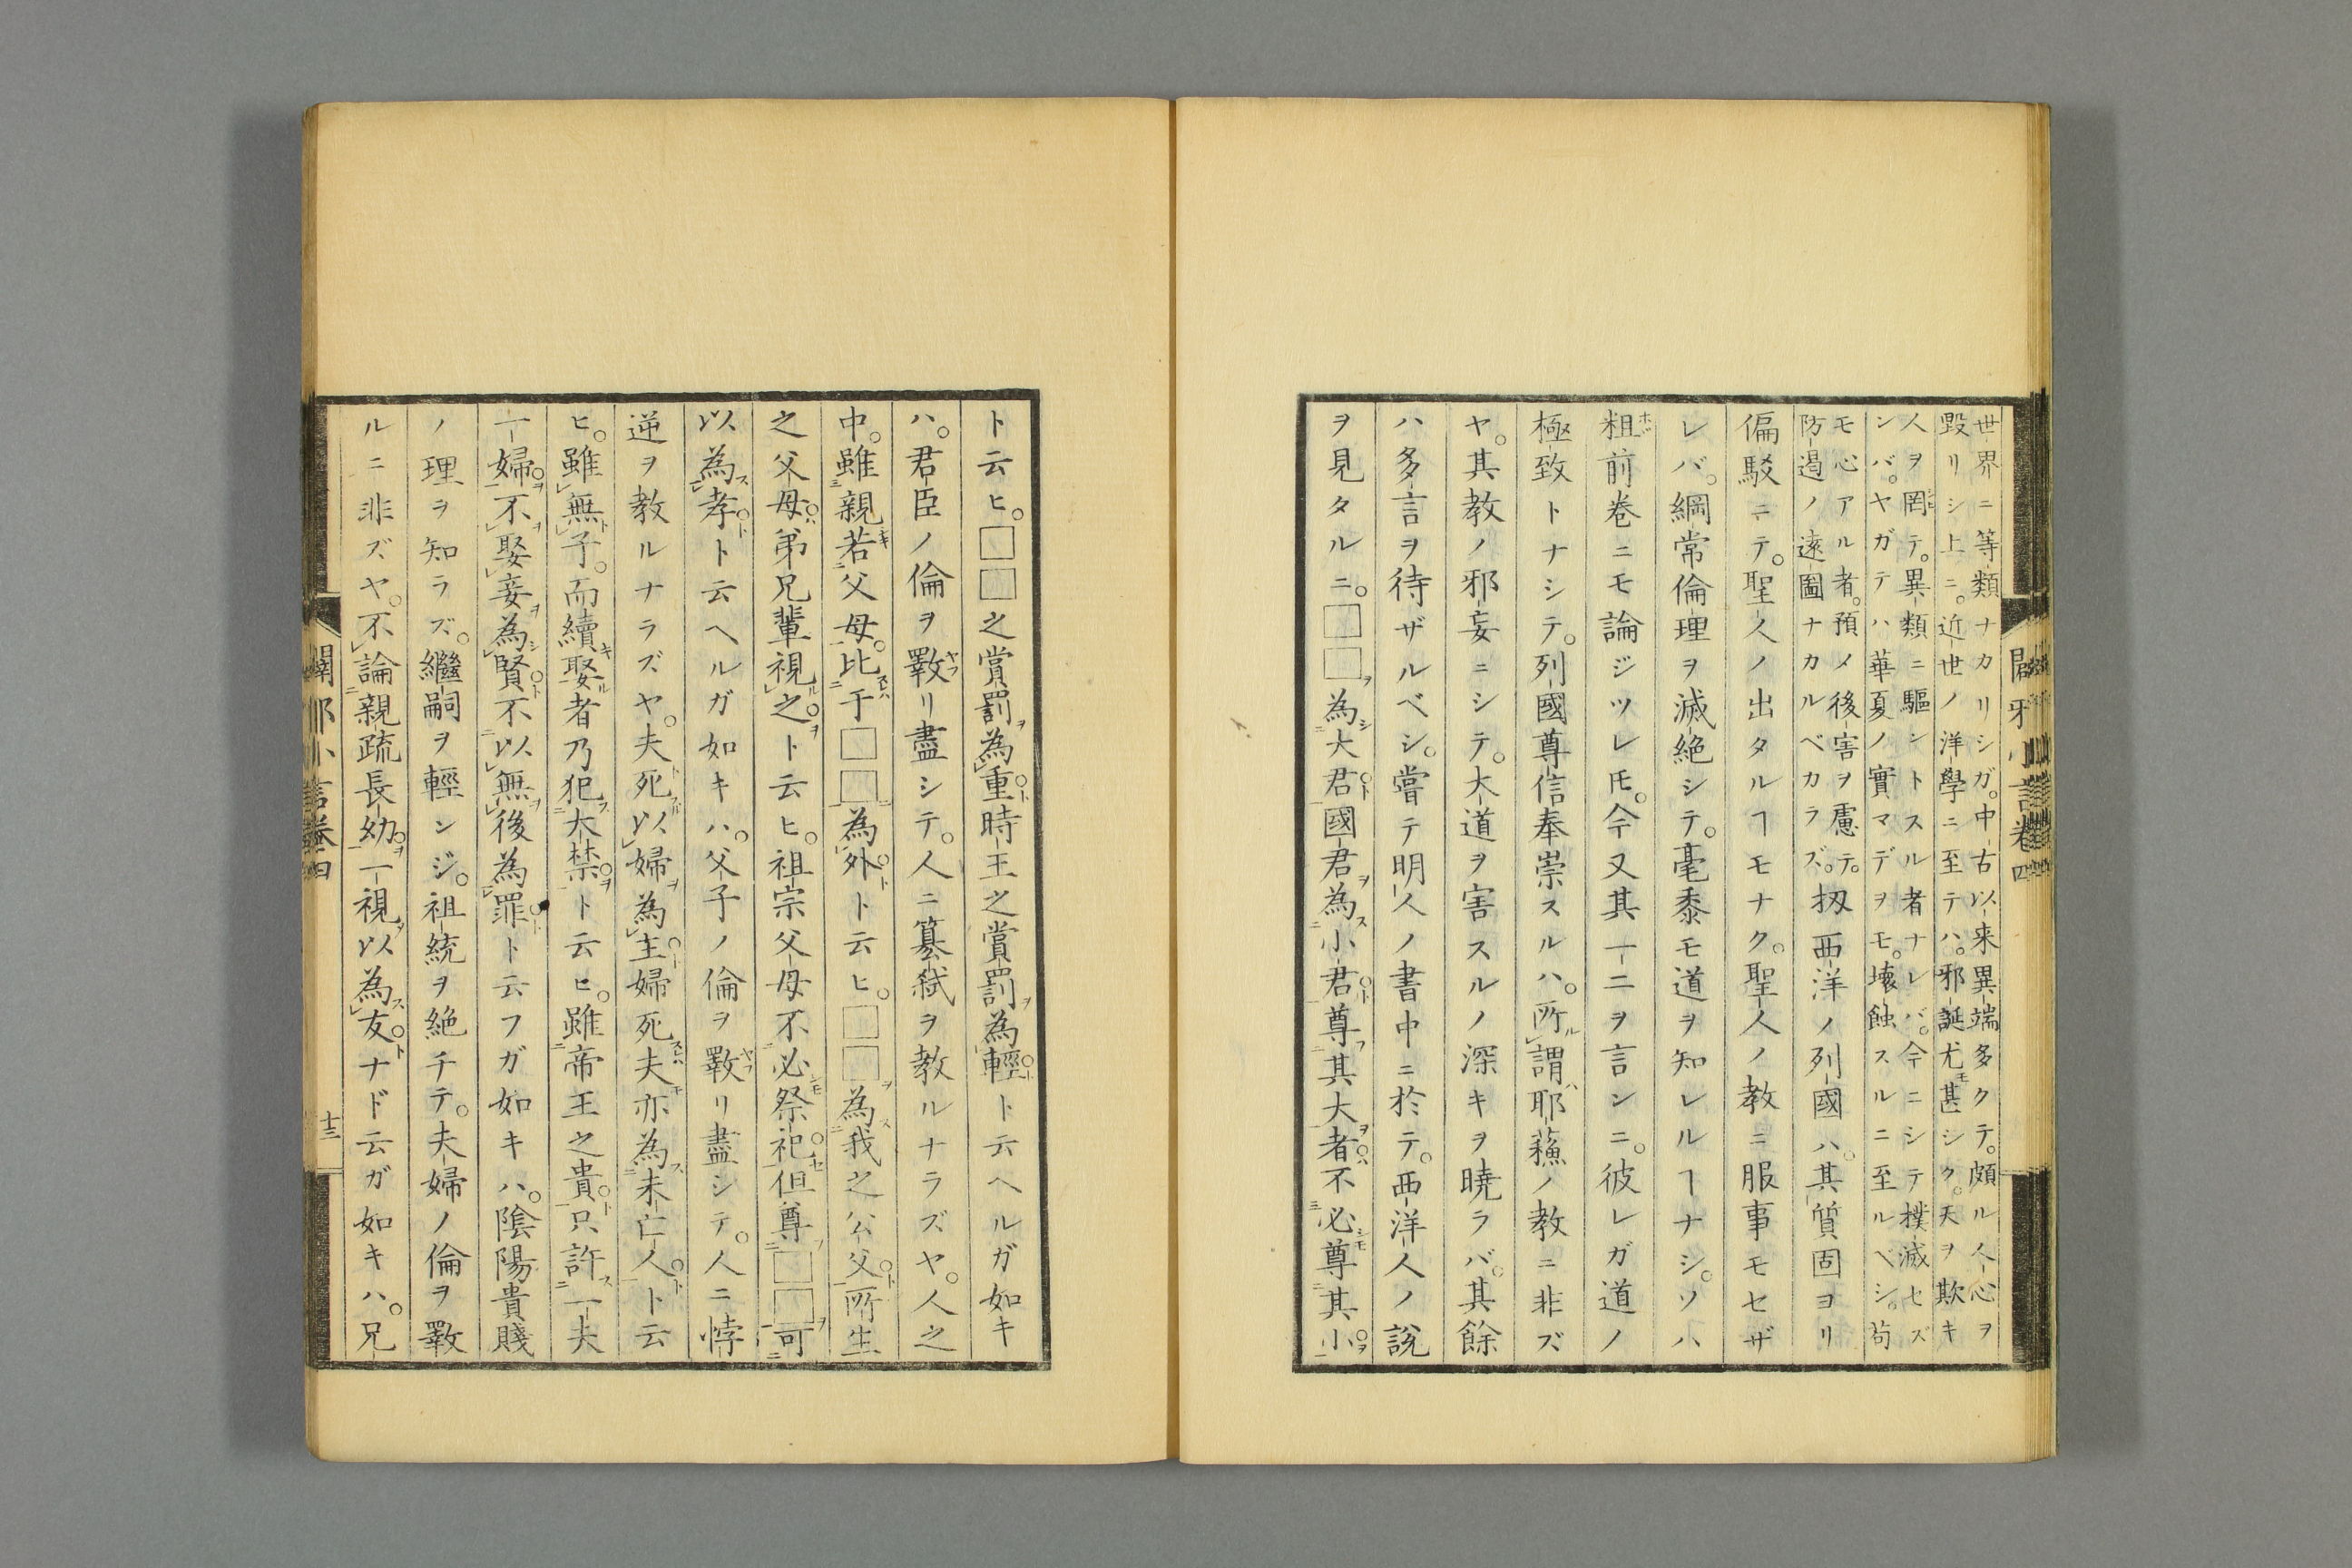 世界ニ等類ナカリシガ。中古以来異端多クテ。頗ル人心ヲ
毀リシ上ニ。近世ノ洋學ニ至テハ。邪誕尤モ甚シク。天ヲ欺キ
人ヲ罔テ。異類ニ驅ントスル者ナレバ。今ニシテ撲滅セズ
ンバ。ヤガテハ華夏ノ實マデヲモ。壊蝕スルニ至ルベシ。苟
モ心アル者。預メ後害ヲ慮テ。
防遏ノ遠圖ナカルベカラズ。扨西洋ノ列國ハ。其質固ヨリ
偏駁ニテ。聖人ノ出タルヿモナク。聖人ノ教ニ服事モセザ
レバ。綱常倫理ヲ滅絶シテ。毫黍モ道ヲ知レルヿナシ。ソハ
粗前卷ニモ論ジツレ𪜈。今又其一二ヲ言ンニ。彼レガ道ノ
極致トナシテ。列國尊信奉崇スルハ。所謂耶蘓ノ教ニ非ズ
ヤ。其教ノ邪妄ニシテ。大道ヲ害スルノ深キヲ曉ラバ。其餘
ハ多言ヲ待ザルベシ。嘗テ明人ノ書中ニ於テ。西洋人ノ說
ヲ見タルニ。□□為大君國君為小君尊其大者不必尊其小
闢邪小言卷四
ト云ヒ。□□之賞罰為重時王之賞罰為輕ト云ヘルガ如キ
ハ。君臣ノ倫ヲ斁リ盡シテ。人ニ簒弑ヲ教ルナラズヤ。人之
中。雖親若父母。比于□□為外ト云ヒ。□□為我之公父所生
之父母第兄輩視之ト云ヒ。祖宗父母不必祭祀但尊□□可
以為孝ト云ヘルガ如キハ。父子ノ倫ヲ斁リ盡シテ。人ニ悖
逆ヲ教ルナラズヤ。夫死以婦為主婦死夫亦為未亡人ト云
ヒ。雖無子。而續娶者乃犯大禁ト云ヒ。雖帝王之貴只許一夫
一婦不娶妾為賢不以無後為罪ト云フガ如キハ。陰陽貴賤
ノ理ヲ知ラズ。繼嗣ヲ輕ンジ。祖統ヲ絶チテ。夫婦ノ倫ヲ斁
ルニ非ズヤ。不論親疏長幼一視以為友ナド云ガ如キハ。兄
闢邪小言卷四
十三